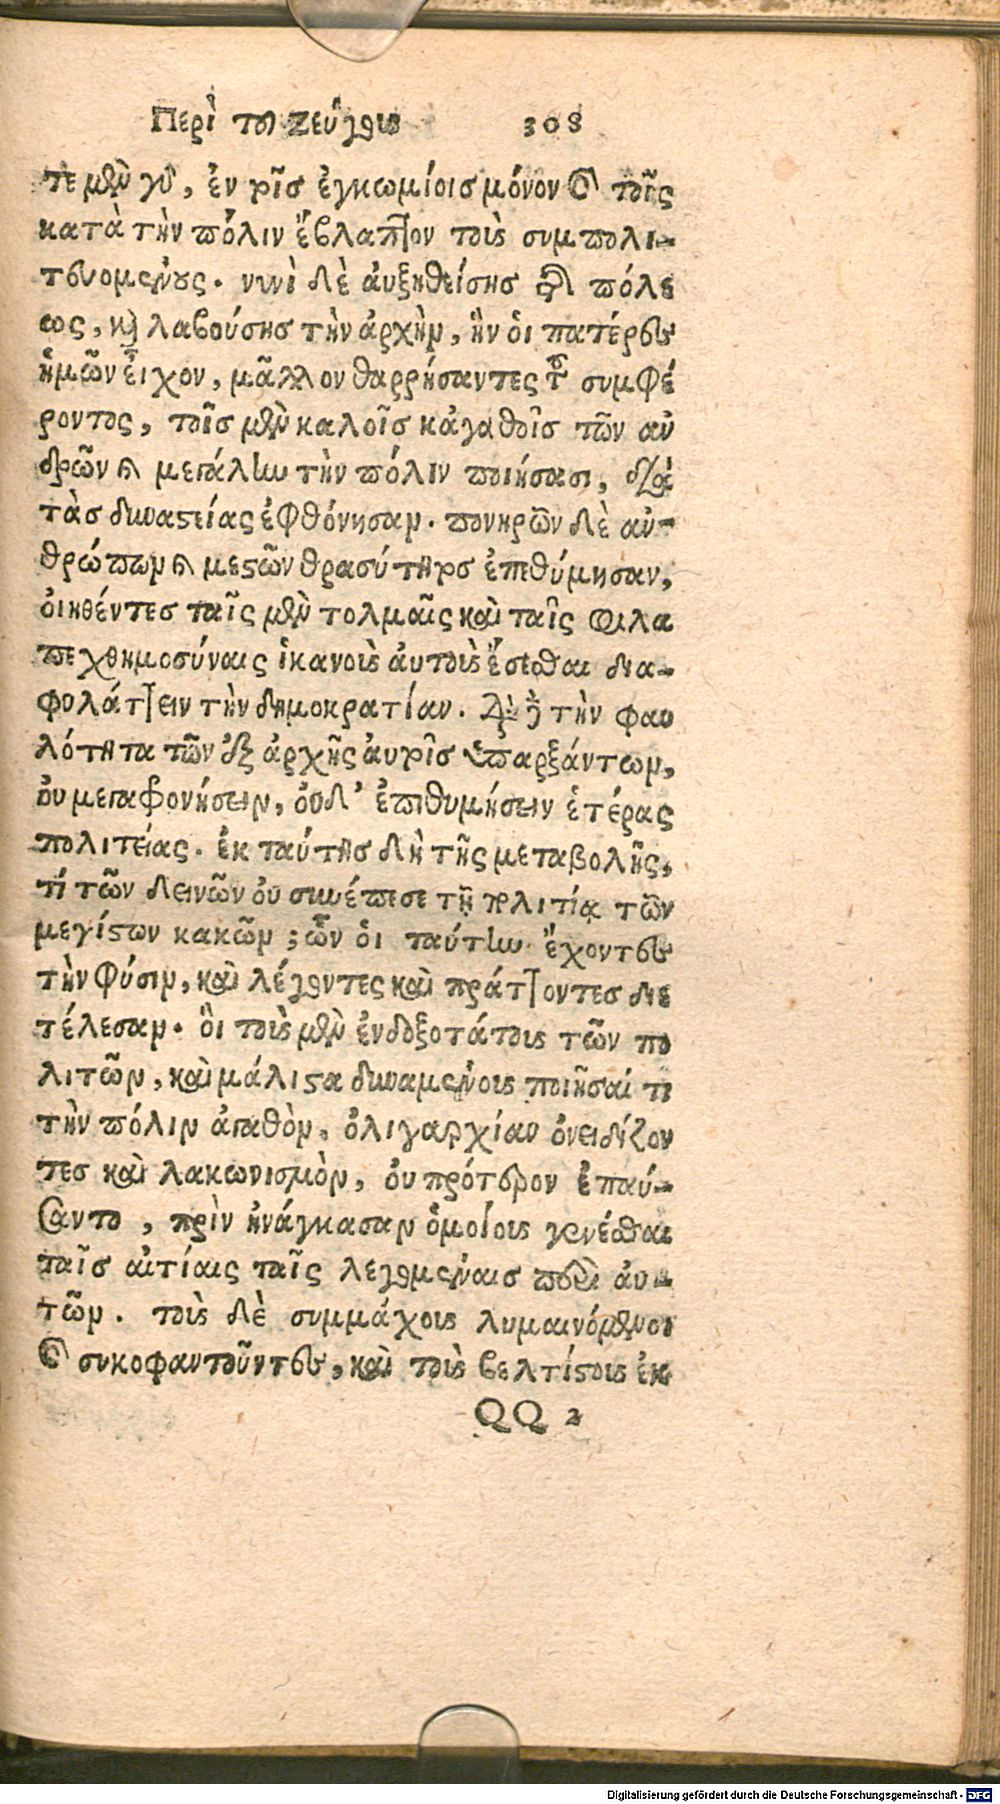 Περὶ τοῦ Ζεύγους 308
τε μὲν γὰρ, ἐν τοῖς ἐγκωμίοις μόνον καὶ τοῖς
κατὰ τὴν πόλιν ἔβλαπτον τοὺς συμπολι-
τευομένους. νυνὶ δὲ ἀυξηθείσης τῆς πόλε
ως, καὶ λαβούσης τὴν ἀρχὴν, ἣν ὁι πατέρες
ἡμῶν εἶχον, μᾶλλον θαρρήσαντες τοῦ συμφέ
ροντος, τοῖς μὲν καλοῖς κἀγαθοῖς τῶν ἀν
δρῶν καὶ μεγάλην τὴν πόλιν ποιήσασι, διὰ
τὰς δυναστείας ἐφθόνησαν. πονηρῶν δὲ ἀν-
θρώπων καὶ μεστῶν θρασύτητος ἐπεθύμησαν,
ὀιηθέντες ταῖς μὲν τολμαῖς καὶ ταῖς φιλα
πεχθημοσύναις ἱκανοὺς ἀυτοὺς ἔσεσθαι δια-
φυλάττειν τὴν δημοκρατίαν. διὰ δὲ τὴν φαυ
λότητα τῶν ἐξ ἀρχῆς ἀυτοῖς ὑπαρξάντων,
ὀυ μεγαφρονήσειν, ὀυδ’ ἐπιθυμήσειν ἑτέρας
πολιτείας. ἐκ ταύτης δὴ τῆς μεταβολῆς,
τί τῶν δεινῶν ὀυ συνέπεσε τῇ πολιτείᾳ τῶν
μεγίστων κακῶν; ὧν ὁι ταύτην ἔχοντες
τὴν φύσιν, καὶ λέγοντες καὶ πράττοντες διε
τέλεσαν. ὃι τοὺς μὲν ἐνδοξοτάτους τῶν πο
λιτῶν, καὶ μάλιστα δυναμένους ποιῆσαί τι
τὴν πόλιν ἀγαθὸν, ὀλιγαρχίαν ὀνειδίζον
τες καὶ λακωνισμὸν, ὀυ πρότερον ἐπαύ-
σαντο, πρὶν ἠνάγκασαν ὁμοίους γενέσθαι
ταῖς ἀιτίαις ταῖς λεγομέναις περὶ ἀυ-
τῶν. τοὺς δὲ συμμάχους λυμαινόμενοι
καὶ συκοφαντοῦντες, καὶ τοὺς βελτίστους ἐκ
QQ 2
Digitalisierung gefördert durch die Deutsche Forschungsgemeinschaft - DFG